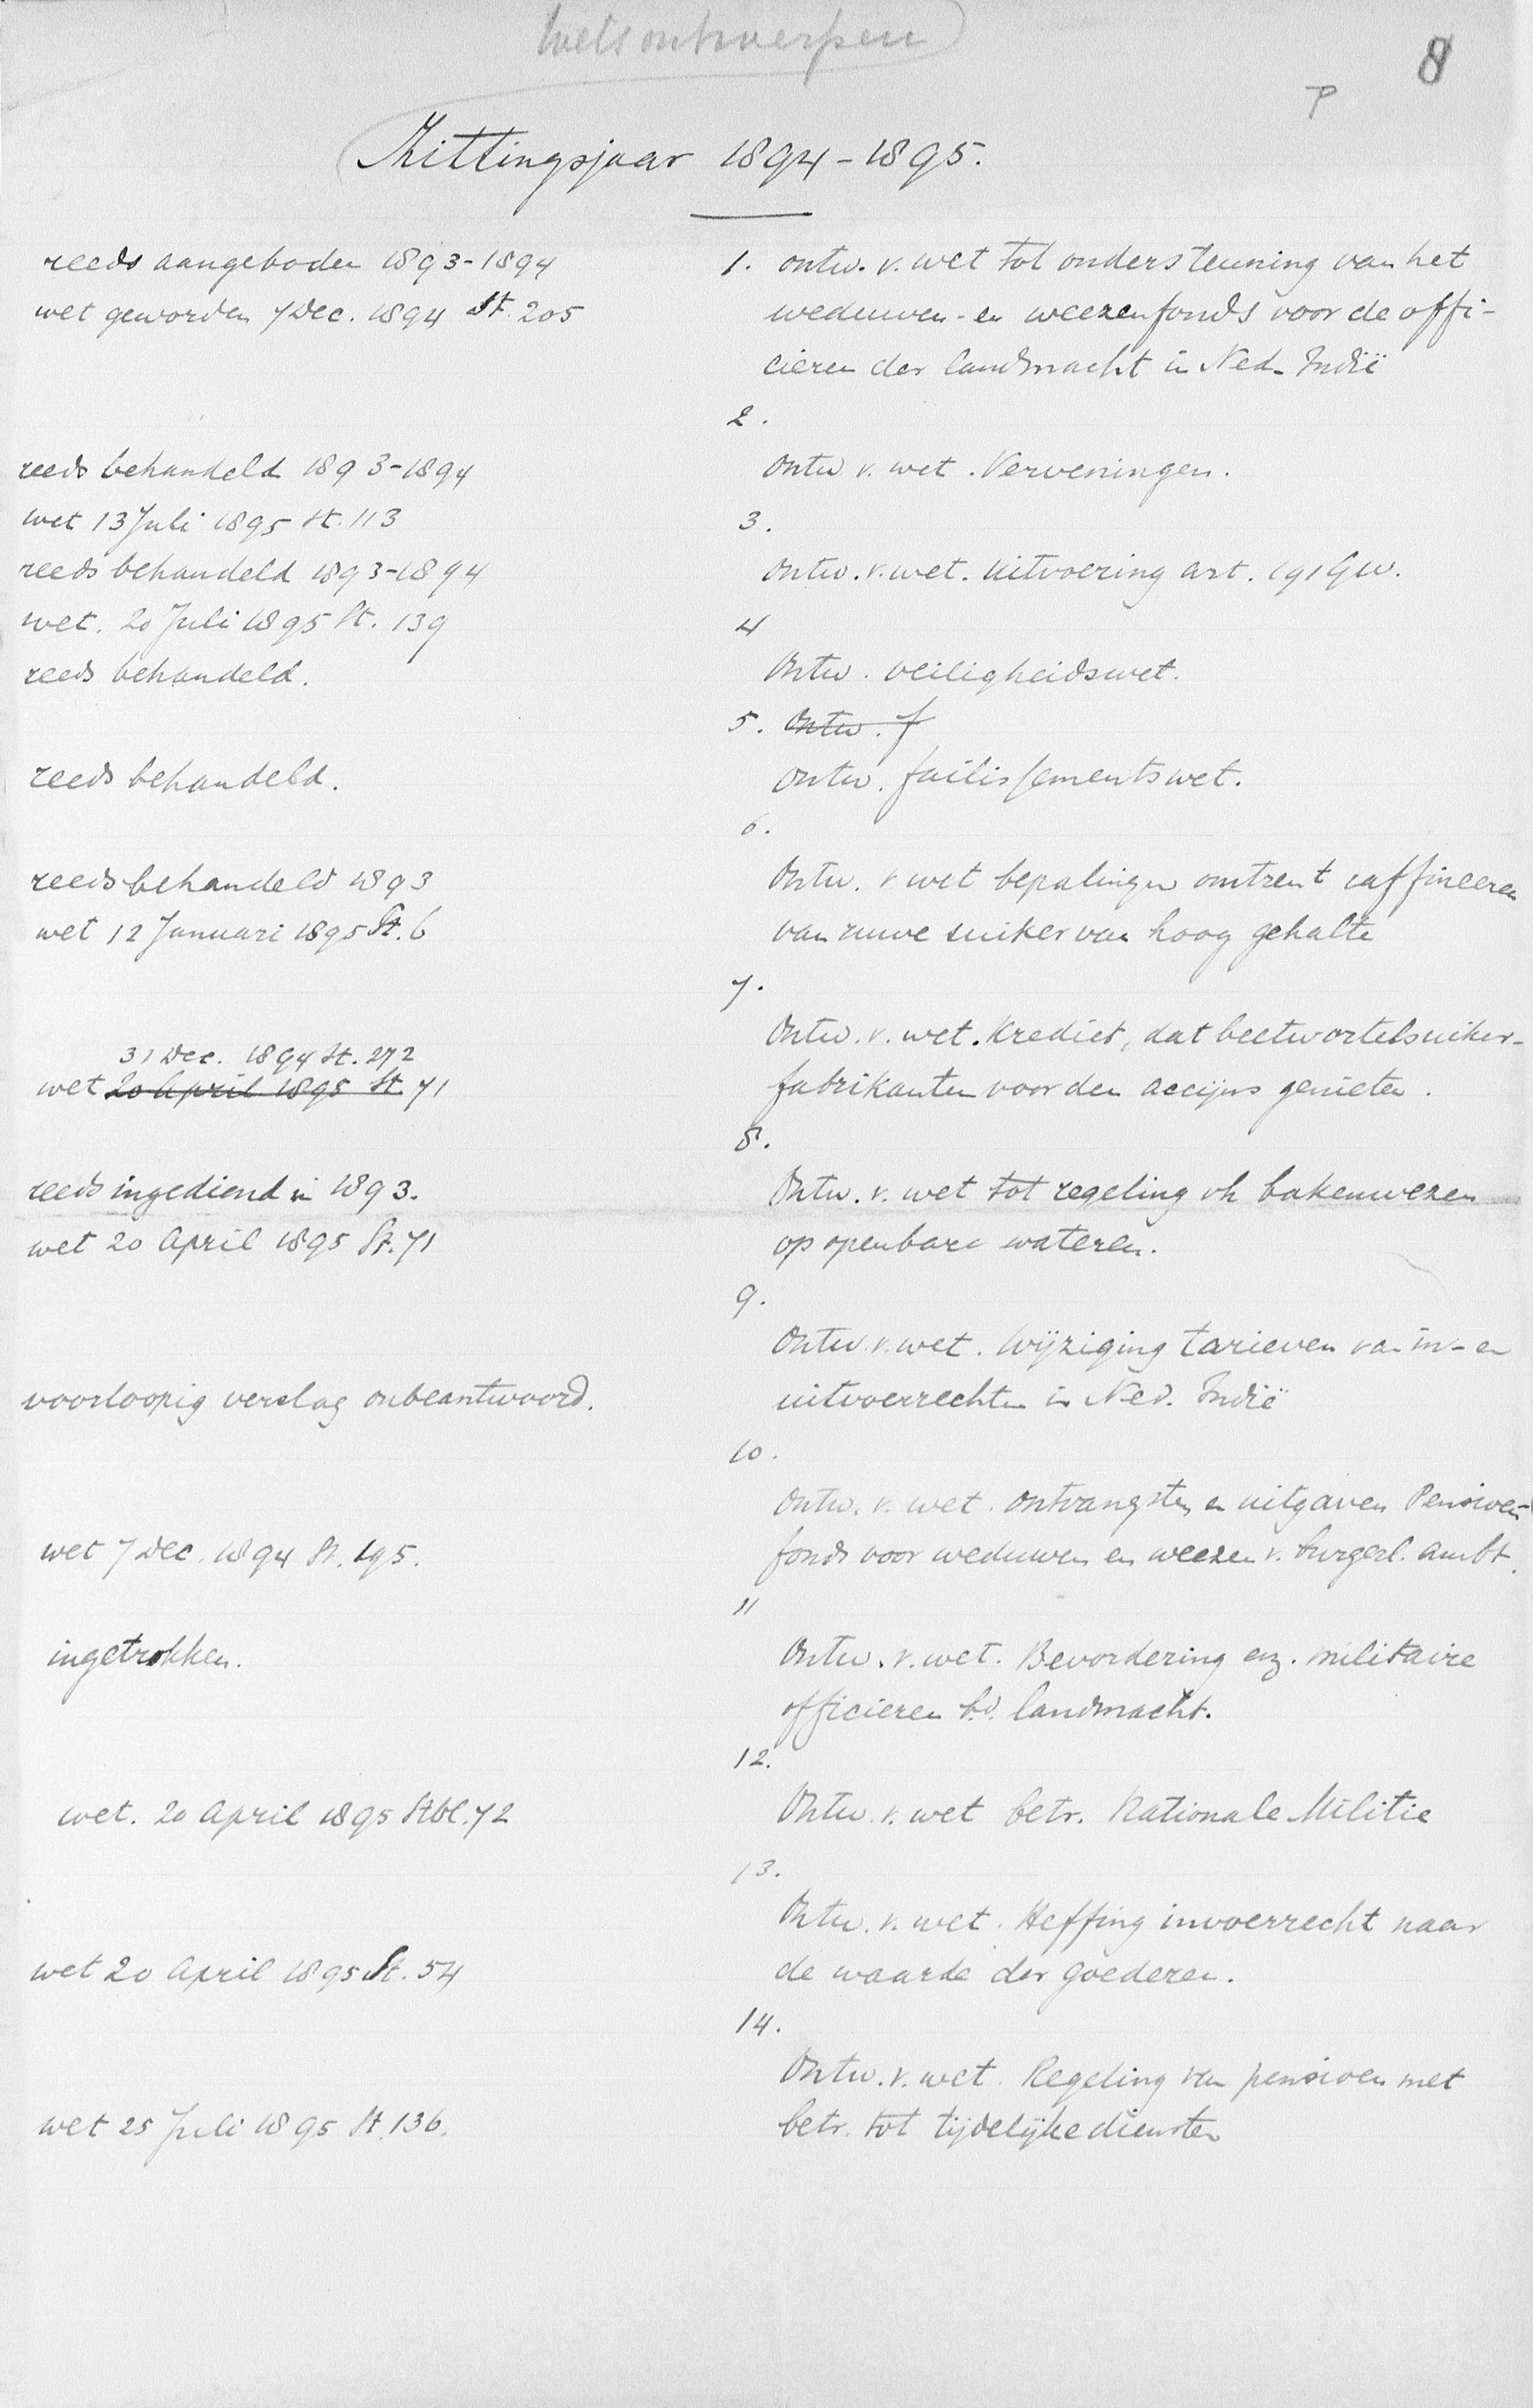 Wetsontwerpen
8
P
Zittingsjaar 1894-1895.
reeds aangeboden 1893-1894
wet geworden 7 Dec. 1894 St. 205
1. ontw. v. wet tot ondersteuning van het
weduwen- en weezenfonds voor de offi-
cieren der landmacht in Ned. Indië
2.
reeds behandeld 1893-1894
wet 13 Juli 1895 St. 113
Ontw v. wet. Verveningen.
3.
reeds behandeld 1893-1894
wet. 20 Juli 1895 St. 139
Ontw. v. wet. Uitvoering art. 191 Gw.
4
reeds behandeld.
Ontw. veiligheidswet.
5. Ontw. f
reeds behandeld.
ontw. faillissementswet.
6.
reeds behandeld 1893
wet 12 Januari 1895 St. 6
Ontw. v wet bepalingen omtrent raffineeren
van ruwe suiker van hoog gehalte
7.
31 Dec. 1894 St. 272
wet 20 April 1895 St. 71
Ontw. v. wet. Krediet, dat beetwortelsuiker-
fabrikanten voor den accijns genieten.
8.
reeds ingediend in 1893.
wet 20 April 1895 St. 71
Ontw. v. wet tot regeling vh bakenwezen
op openbare wateren.
9.
voorloopig verslag onbeantwoord.
Ontw. v. wet. Wijziging tarieven van in- en
uitvoerrechten in Ned. Indië
10.
wet 7 Dec. 1894 St. 195.
Ontw. v. wet. ontvangsten en uitgaven Pensioen-
fonds voor weduwen en weezen v. burgerl. ambt.
11
ingetrokken.
Ontw. v. wet. Bevordering enz. militaire
officieren b.d. landmacht.
12.
wet. 20 April 1895 Stbl. 72
Ontw. v. wet betr. Nationale Militie
13.
wet 20 April 1895 St. 54
Ontw. v. wet. Heffing invoerrecht naar
de waarde der goederen.
14.
wet 25 Juli 1895 St. 136.
Ontw. v. wet. Regeling van pensioen met
betr. tot tijdelijke diensten